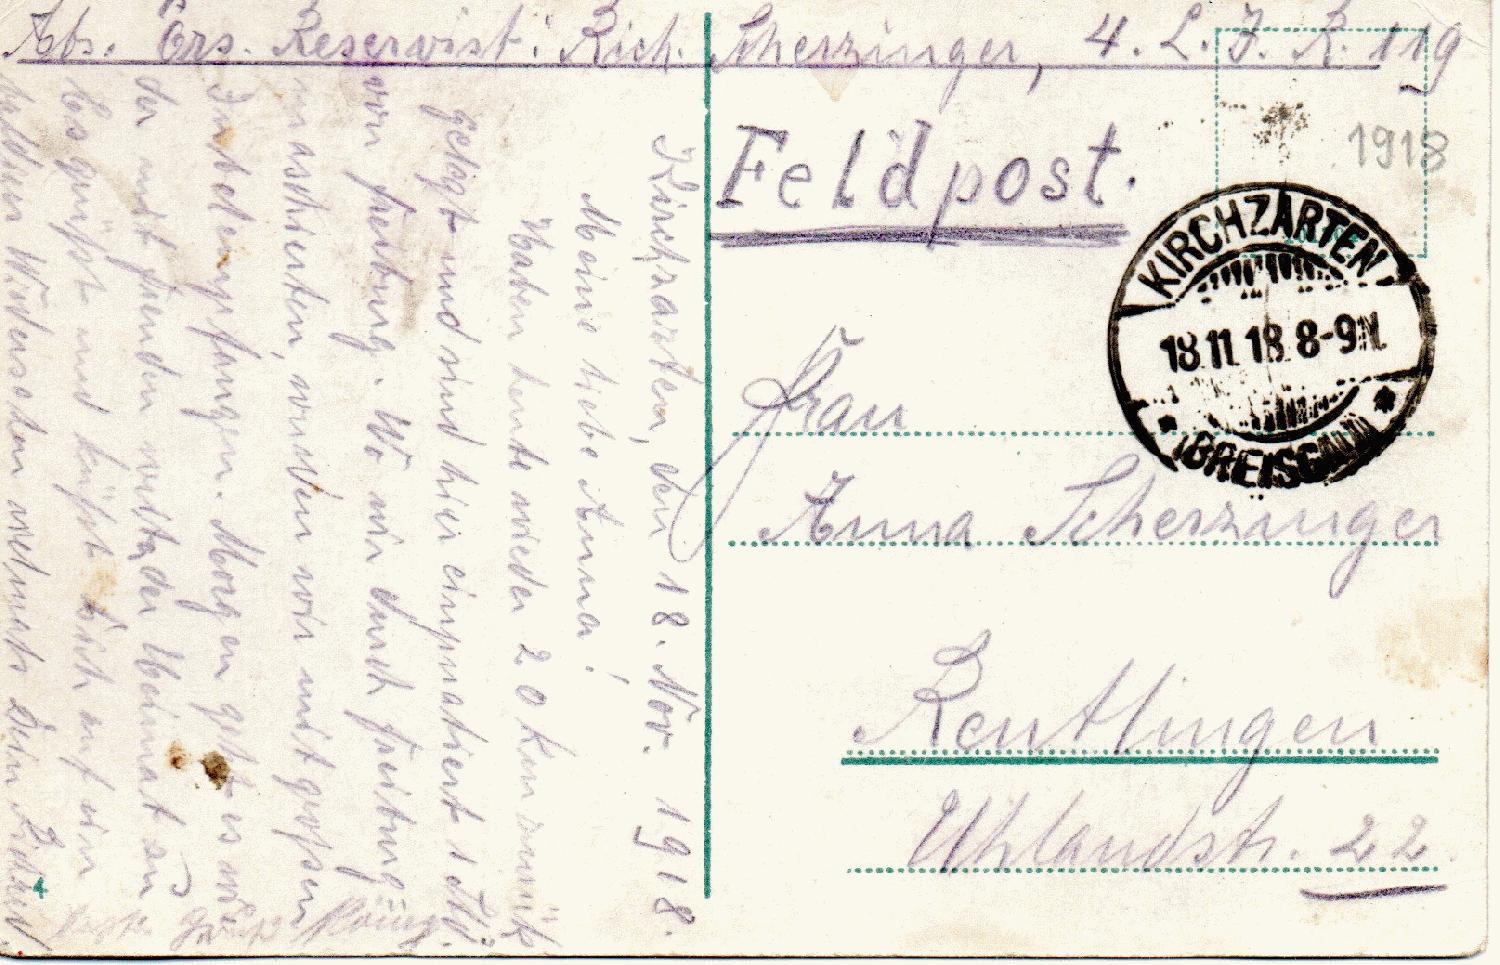 Abs. Ers. Reservist. Rich. Scherzinger, 4. L. I. R. 119
Feldpost.
1918
KIRCHZARTEN
18.11.18. 8-9 N.
(BREISGAU)
Frau
Anna Scherzinger
Reutlingen
Uhlandstr. 22.
Kirchzarten, den 18. Nov. 1918.
Meine liebe Anna!
Haben heute wieder 20 Km zurück
gelegt und sind hier einquatiert 1 Std.
von Freiburg. Wo wir durch Freiburg
maschierten, wurden wir mit großem
Jubel empfangen. Morgen geht es wie
der mit Freuden weiter der Heimat zu
Es grüßt und küßt dich auf ein
baldiges Wiedersehen vielmals Dein Richard
4